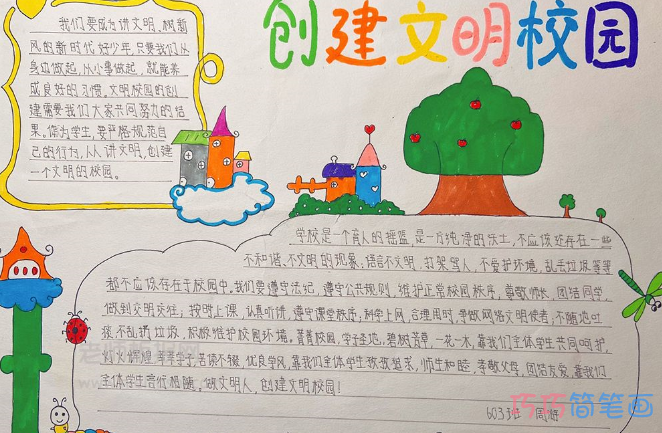 创建文明校园
我们要成为讲文明、树新
风的新时代好少年,只要我们从
身边做起,从小事做起,就能养
成良好的习惯。文明校园的创
建需要我们大家共同努力的结
果。作为学生,要严格规范自
己的行为,人人讲文明,创建
一个文明的校园。
学校是一个育人的摇篮,是一方纯净的乐土,不应该还存在一些
不和谐、不文明的现象:语言不文明,打架骂人,不爱护环境,乱丢垃圾等等
都不应该存在于校园中。我们要遵守法纪,遵守公共规则,维护正常校园秩序,尊敬师长,团结同学,
做到文明交往;按时上课,认真听讲,遵守课堂秩序,科学上网,合理用时,争做网络文明使者;不随地吐
痰,不乱扔垃圾,积极维护校园环境。菁菁校园,学子圣地,碧树芳草,一花一木,靠我们全体学生共同呵护,
灯火辉煌,莘莘学子,苦读不辍,优良学风,靠我们全体学生孜孜,师生和睦,孝敬父母,团结友爱,靠我们
全体学生。做文明人,创建文明校园!
603班 周
巧巧简笔画